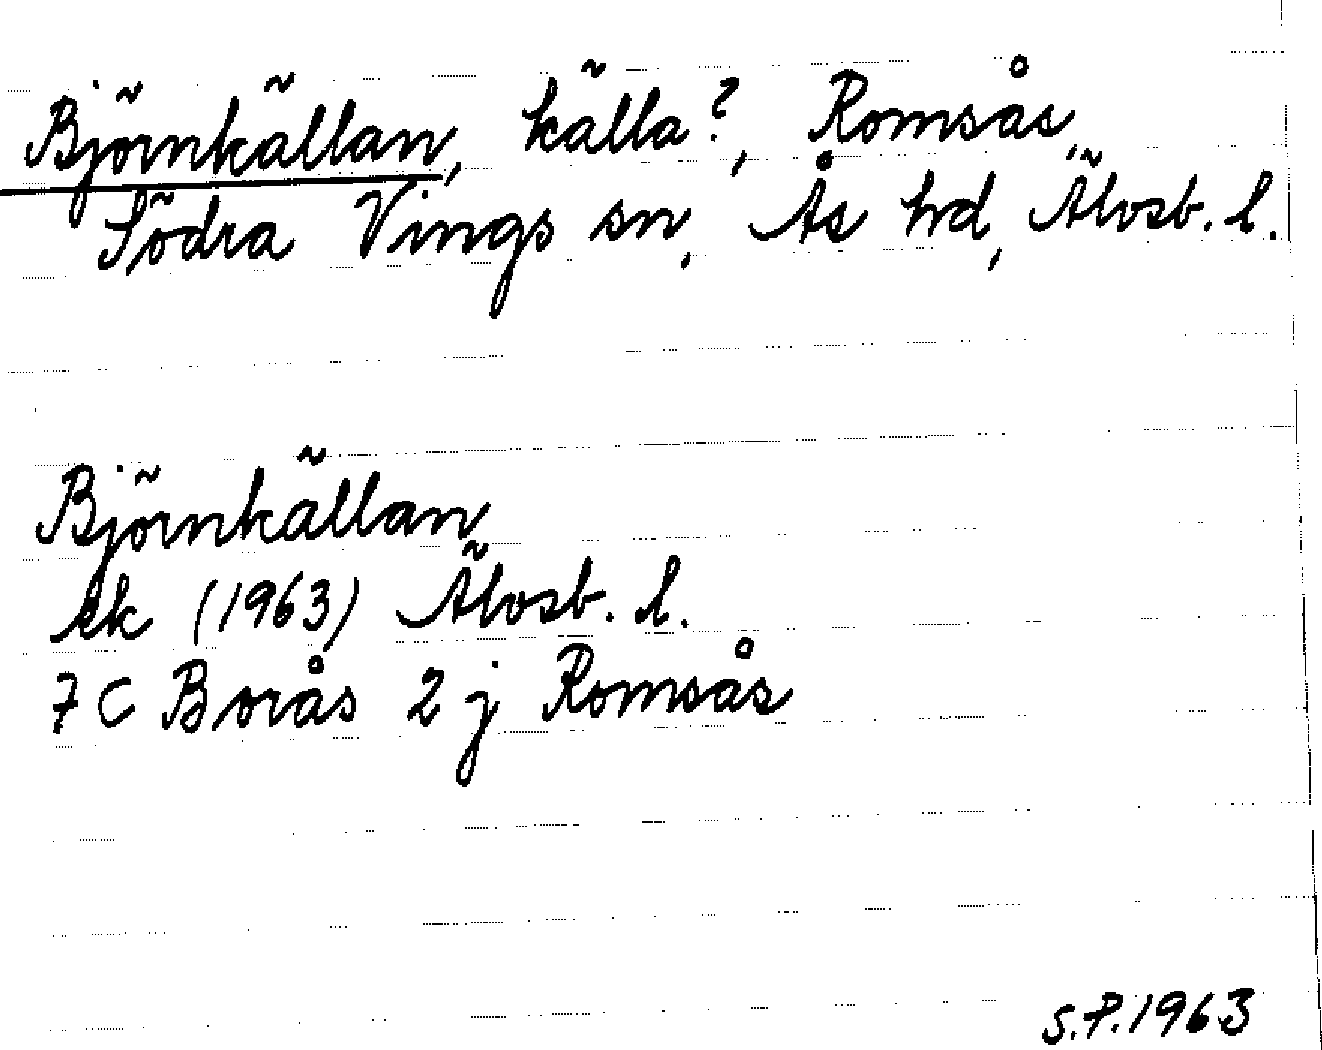 Björnkällan, källa?, Romsås,
Södra Vings sn, Ås hd, Älvsb. l.
Björnkällan
ek (1963) Älvsb. l.
7 C Borås 2 j Romsås
S.P. 1963